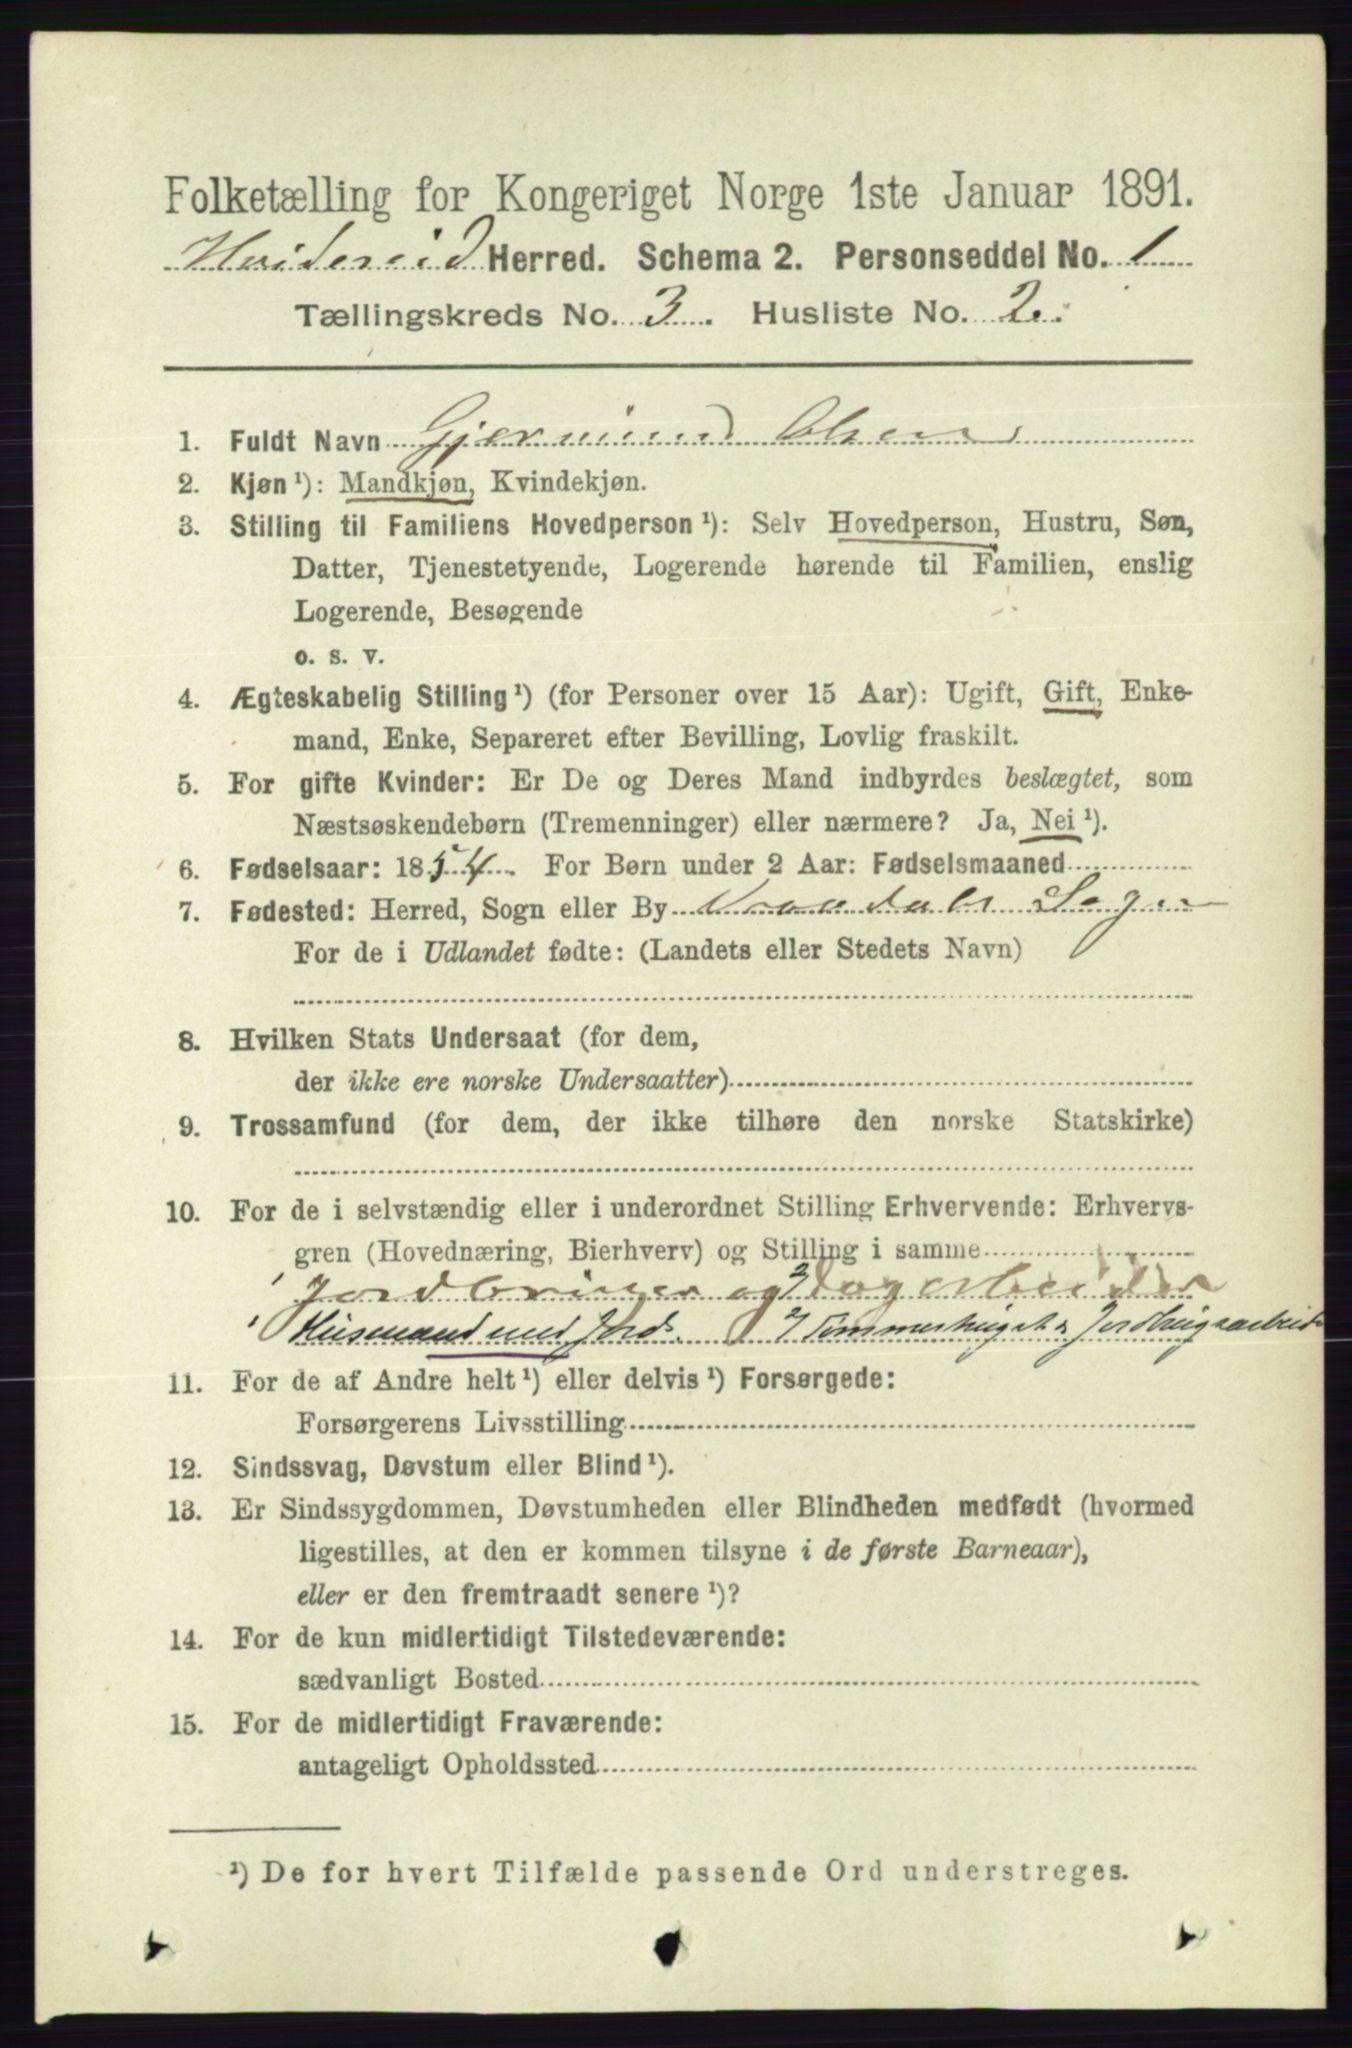 Folketælling for Kongeriget Norge 1ste Januar 1891.
Hvideseid Herred. Schema 2. Personseddel No. 1
Tællingskreds No. 3. Husliste No. 2.
1. Fuldt Navn Gjermund Olsen
2. Kjøn ¹): Mandkjøn, Kvindekjøn.
3. Stilling til Familiens Hovedperson ¹): Selv Hovedperson, Hustru, Søn,
Datter, Tjenestetyende, Logerende hørende til Familien, enslig
Logerende, Besøgende
o. s. v.
4. Ægteskabelig Stilling ¹) (for Personer over 15 Aar): Ugift, Gift, Enke-
mand, Enke, Separeret efter Bevilling, Lovlig fraskilt.
5. For gifte Kvinder: Er De og Deres Mand indbyrdes beslægtet, som
Næstsøskendebørn (Tremenninger) eller nærmere? Ja, Nei ¹).
6. Fødselsaar: 1854. For Børn under 2 Aar: Fødselsmaaned
7. Fødested: Herred, Sogn eller By Vraadals Sogn
For de i Udlandet fødte: (Landets eller Stedets Navn)
8. Hvilken Stats Undersaat (for dem,
der ikke ere norske Undersaatter)
9. Trossamfund (for dem, der ikke tilhøre den norske Statskirke)
10. For de i selvstændig eller i underordnet Stilling Erhvervende: Erhvervs-
gren (Hovednæring, Bierhverv) og Stilling i samme
Jordbruger og 2/ Dagarbeider
Husmand med Jord. 2/ Tømmerhugst & Jordbrugsarbeide
11. For de af Andre helt ¹) eller delvis ¹) Forsørgede:
Forsørgerens Livsstilling
12. Sindssvag, Døvstum eller Blind ¹).
13. Er Sindssygdommen, Døvstumheden eller Blindheden medfødt (hvormed
ligestilles, at den er kommen tilsyne i de første Barneaar),
eller er den fremtraadt senere ¹)?
14. For de kun midlertidigt Tilstedeværende:
sædvanligt Bosted
15. For de midlertidigt Fraværende:
antageligt Opholdssted
¹) De for hvert Tilfælde passende Ord understreges.